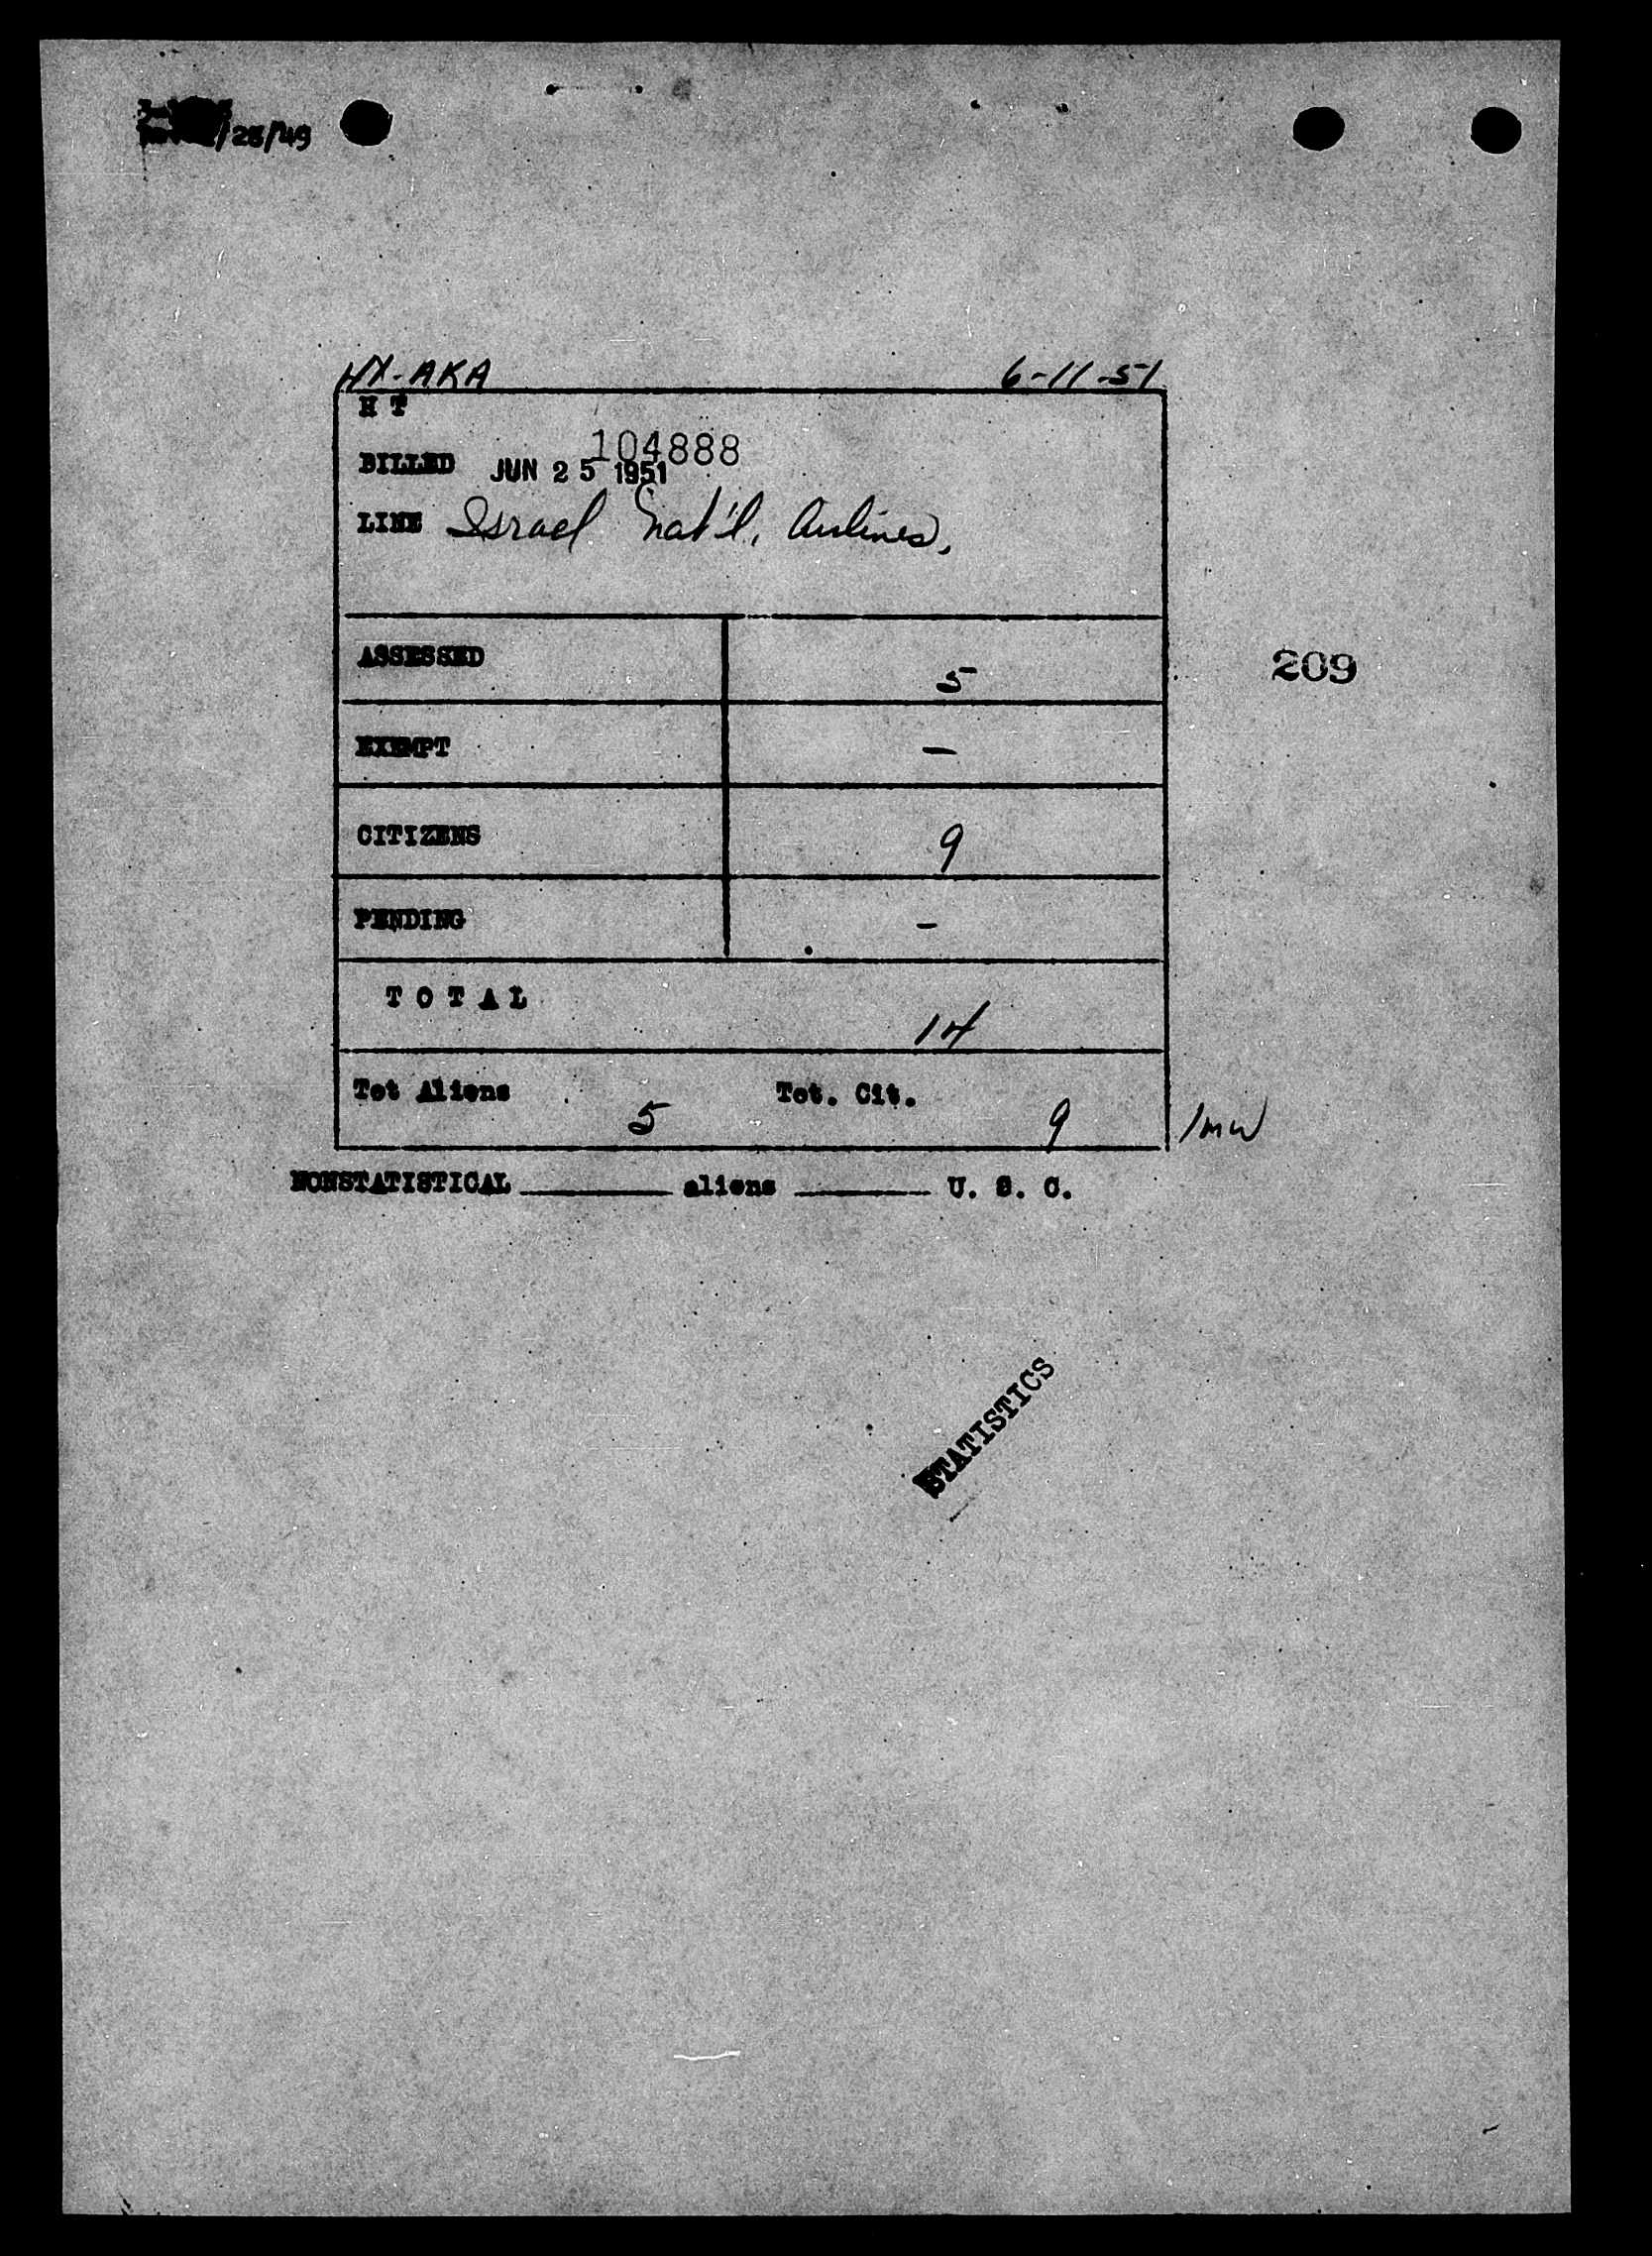 /25/49
4X-AKA 6-11-51
H T
104888
BILLED JUN 25 1951
LINE Israel Nat'l. Airlines,
ASSESSED 5
209
EXEMPT –
CITIZENS 9
PENDING -
TOTAL 14
Tot Aliens 5 Tot. Cit. 9 /mw
NONSTATISTICAL ______ aliens ______ U. S. C.
STATISTICS